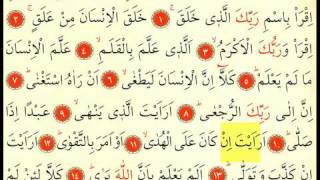 اِقْرَأْ بِاسْمِ رَبِّكَ الَّذِى خَلَقَ ﴿١﴾ خَلَقَ الْاِنْسَانَ مِنْ عَلَقٍ ﴿٢﴾
اِقْرَأْ وَرَبُّكَ الْاَكْرَمُ ﴿٣﴾ اَلَّذِى عَلَّمَ بِالْقَلَمِ ﴿٤﴾ عَلَّمَ الْاِنْسَانَ
مَا لَمْ يَعْلَمْ ﴿٥﴾ كَلَّا اِنَّ الْاِنْسَانَ لَيَطْغٰى ﴿٦﴾ اَنْ رَاٰهُ اسْتَغْنٰى ﴿٧﴾
اِنَّ اِلٰى رَبِّكَ الرُّجْعٰى ﴿٨﴾ اَرَاَيْتَ الَّذِى يَنْهٰى ﴿٩﴾ عَبْدًا اِذَا
صَلّٰى ﴿١٠﴾ اَرَاَيْتَ اِنْ كَانَ عَلَى الْهُدٰى ﴿١١﴾ اَوْ اَمَرَ بِالتَّقْوٰى ﴿١٢﴾ اَرَاَيْتَ
اِنْ كَذَّبَ وَتَوَلّٰى ﴿١٣﴾ اَلَمْ يَعْلَمْ بِاَنَّ اللّٰهَ يَرٰى ﴿١٤﴾ كَلَّا لَئِنْ لَمْ